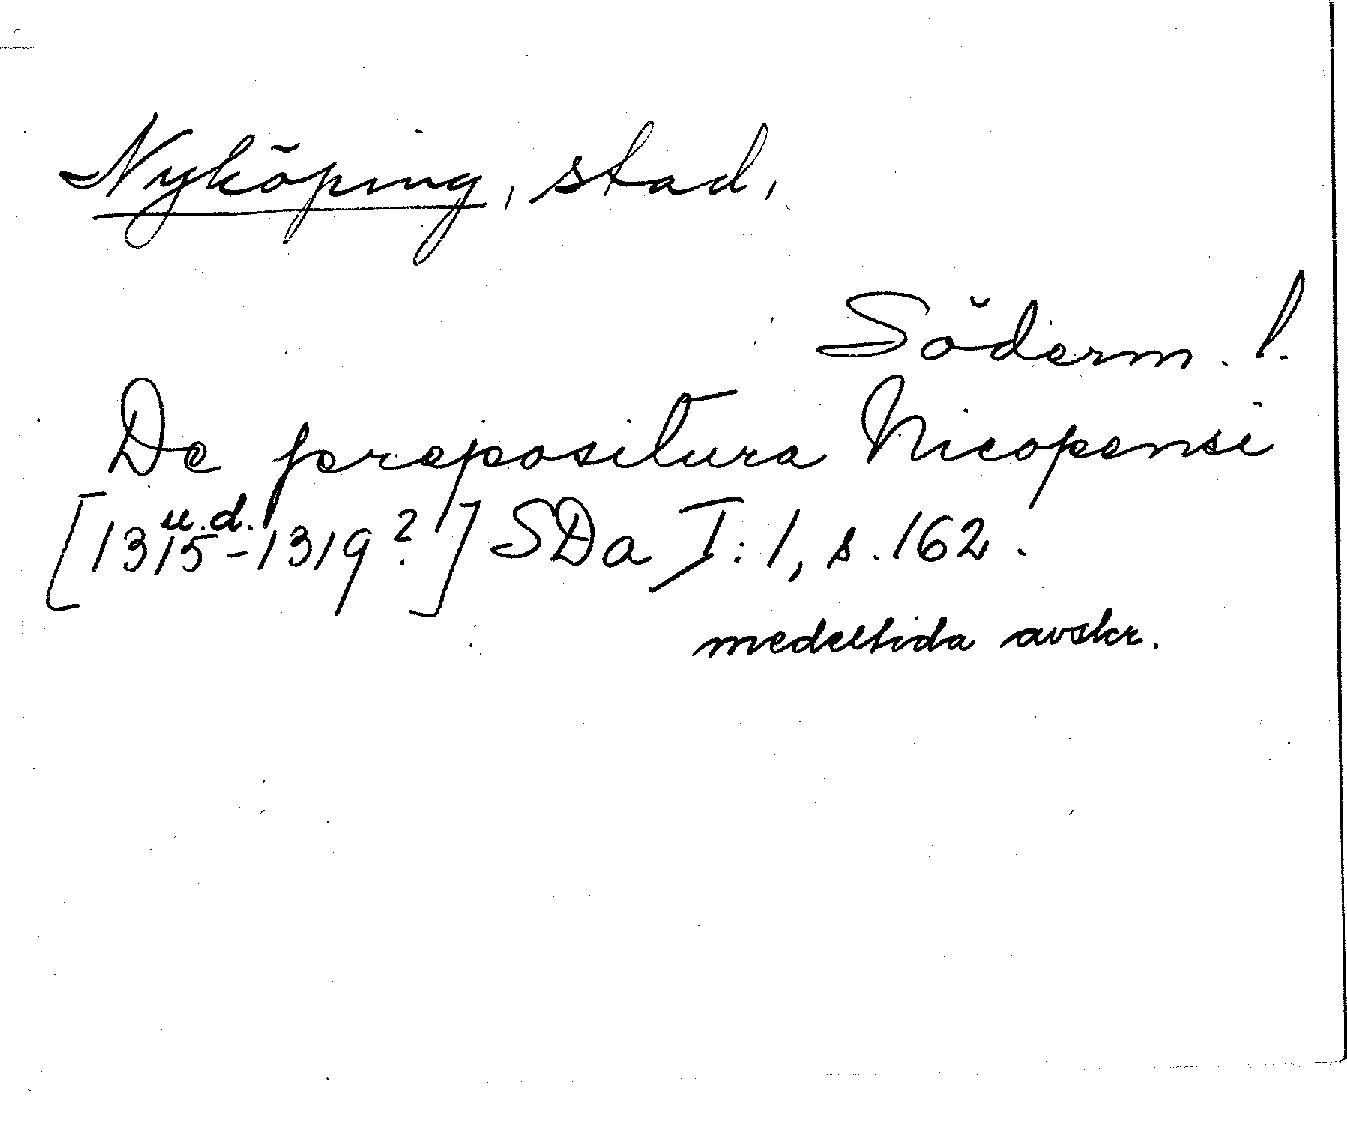 Nyköping, stad,
Söderm. l.
De prepositura Nicopensi
u. d.
[1315-1319?] SDa I:1, s. 162.
medeltida avskr.